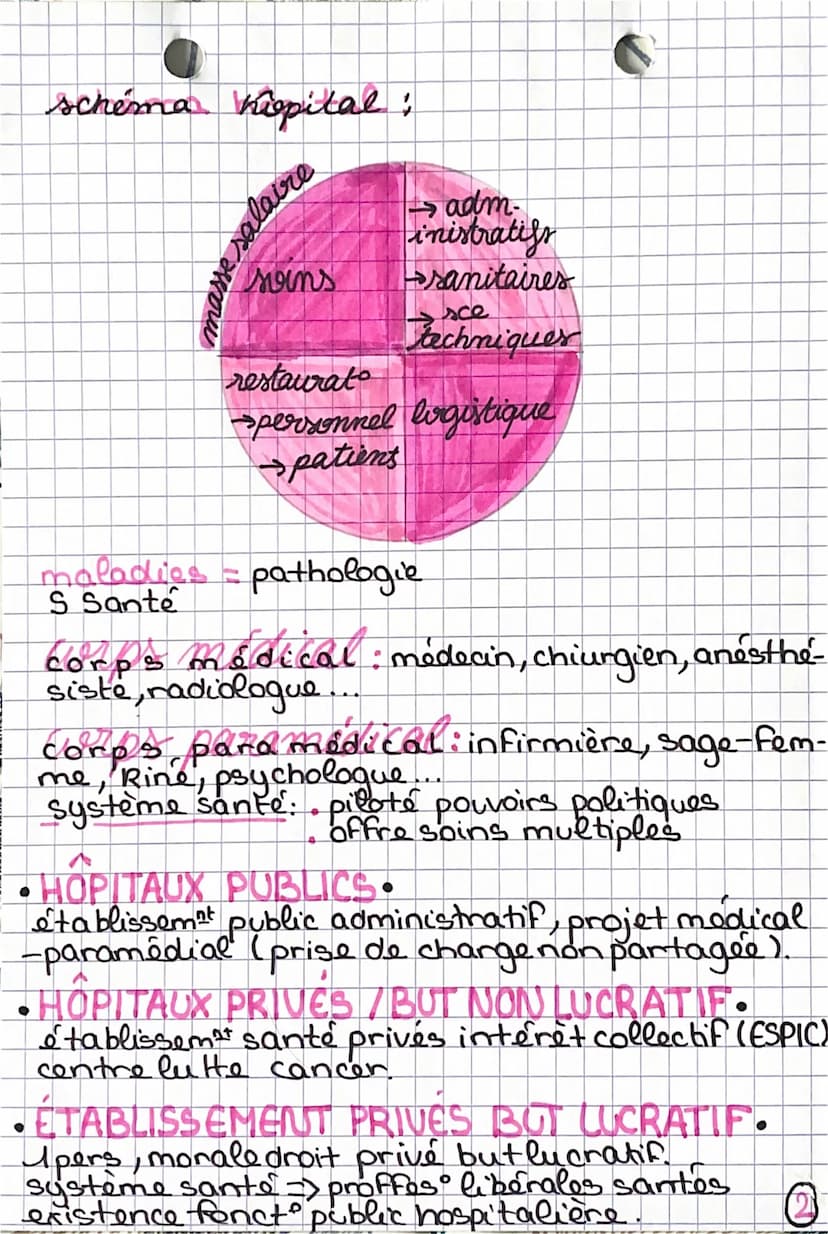 schéma hôpital :
masse salaire
soins
→ adm-
inistratifs
→ sanitaires
→ sce
techniques
resturat°
→ personnel
→ patients
logistique
maladies = pathologie
S Santé
corps médical : médecin, chiurgien, anésthé-
siste, radiologue...
corps paramédical : infirmière, sage-fem-
me, Kiné, psychologue...
système santé : • piloté pouvoirs politiques
• offre soins multiples
• HÔPITAUX PUBLICS •
établissemnt public administratif, projet médical
-paramédial (prise de charge non partagée).
• HÔPITAUX PRIVÉS / BUT NON LUCRATIF •
établissemnt santé privés intérêt collectif (ESPIC)
centre lutte cancer.
• ÉTABLISSEMENT PRIVÉS BUT LUCRATIF •
1 pers, morale droit privé but lucratif.
système santé => proffes° libérales santés
existence fonct° public hospitalière.
2